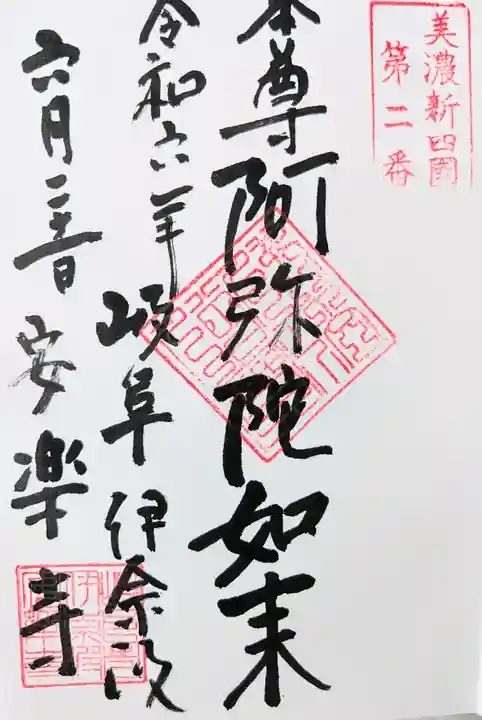 美濃新四国
第二番
本尊阿弥陀如来
令和六年 岐阜 伊奈波
六月二 日 安楽寺